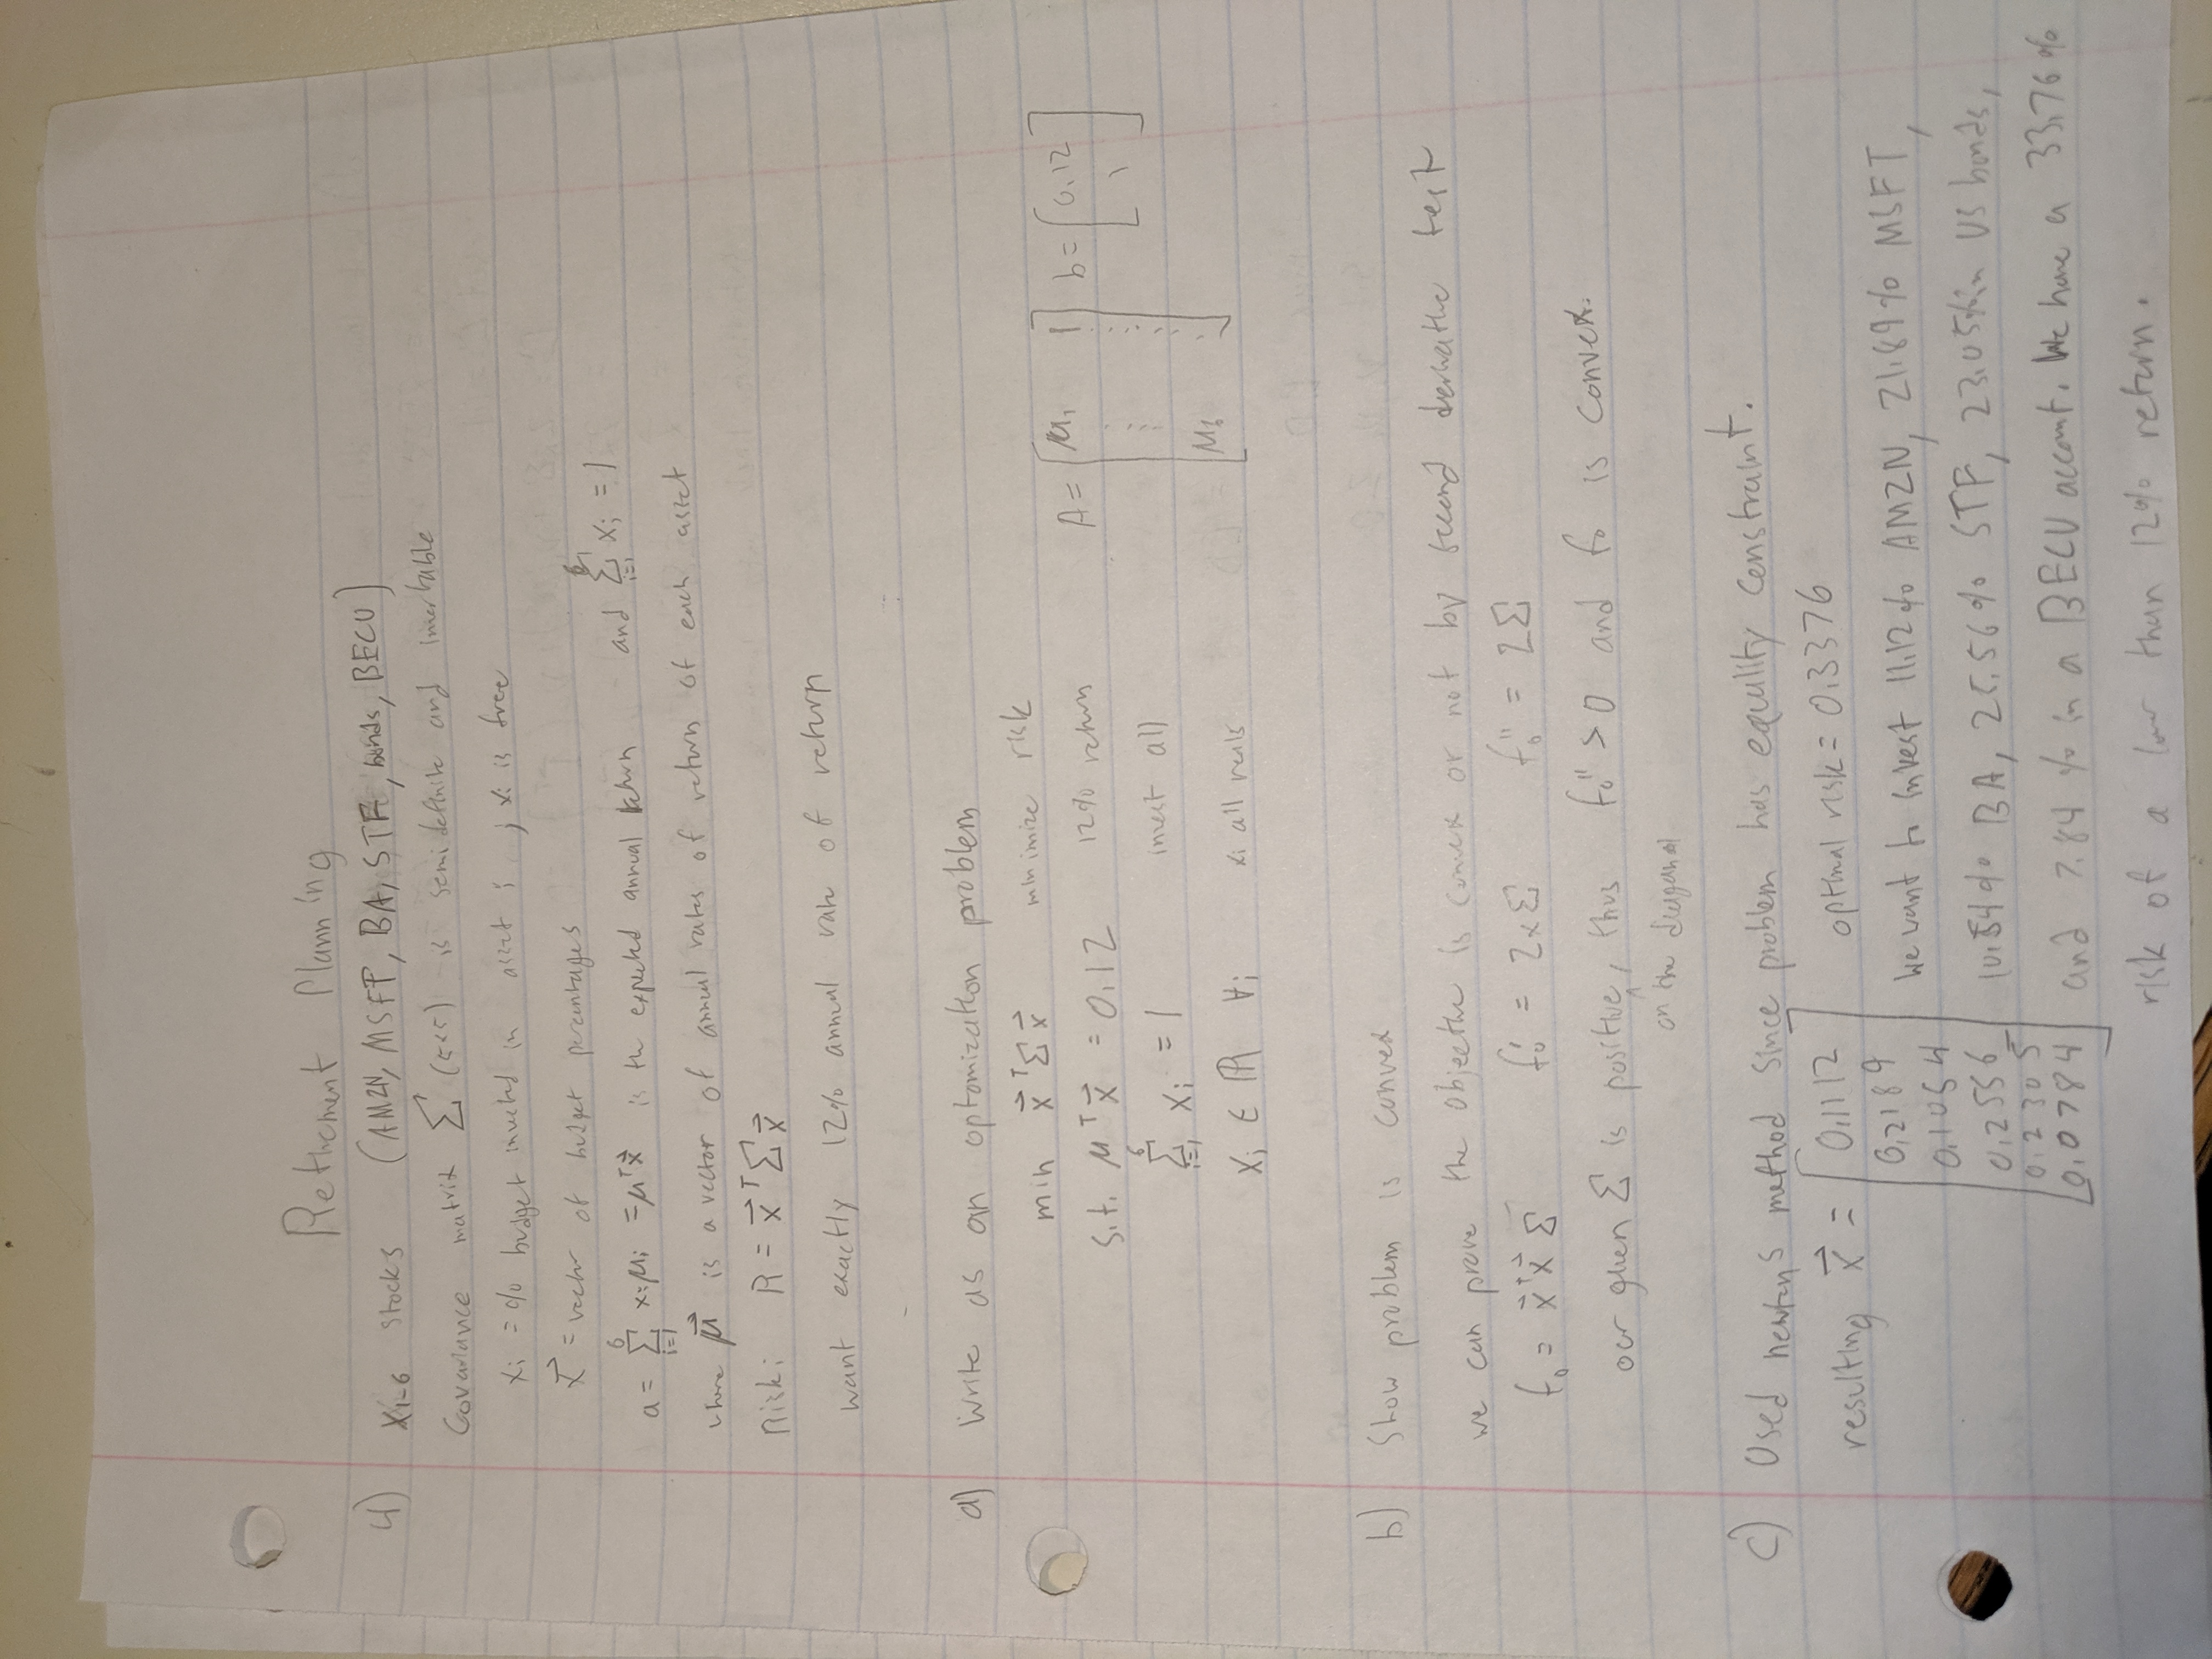 Retirement Planning
4) X1-6 stocks (AMZN, MSFT, BA, STF, bonds, BECU)
Covariance matrix Σ (5x5) is semidefinite and invertable
xi = % budget invested in asset i ; xi is free
x⃗ = vector of budget percentages
a = Σ_{i=1}^{6} xiμi = μᵀx⃗ is the expected annual return and Σ_{i=1}^{6} xi = 1
where μ⃗ is a vector of annual rates of return of each asset
Risk: R = x⃗ᵀΣx⃗
want exactly 12% annual rate of return
a) Write as an optomization problem
min x⃗ᵀΣx⃗ minimize risk
s.t. μᵀx⃗ = 0.12 12% return A = [μ1 1 ⋮ ⋮ μ6] b = [0.12 1]
Σ_{i=1}^{6} xi = 1 invest all
xi ∈ ℝ ∀i xi all reals
b) Show problem is convex
we can prove the objective is convex or not by second derivative test
f₀ = x⃗ᵀx⃗ Σ f₀' = 2xΣ f₀'' = 2Σ
our given Σ is positive, thus f₀'' > 0 and f₀ is convex.
^ on the diagonal
c) Used newtons method since problem has equality constraint.
resulting x⃗ = [0.1112 optimal risk = 0.3376
0.2189 We want to invest 11.12% AMZN, 21.89% MSFT,
0.1054
0.2556 10.54% BA, 25.56% STF, 23.05% in US bonds,
0.2305
0.0784] and 7.84% in a BECU account. We have a 33.76%
risk of a lower than 12% return.